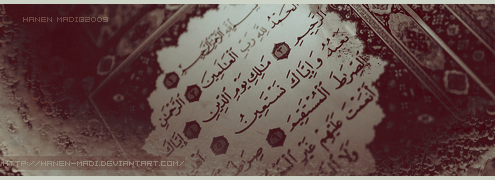 HANEN MADI@2009
بسم الله الرحمن الرحيم
الحمد لله رب العالمين
الرحمن الرحيم
ملك يوم الدين
إياك نعبد وإياك نستعين
الصراط المستقيم
صراط
أنعمت عليهم غير
ولا
HTTP://HANEN-MADI.DEVIANTART.COM/